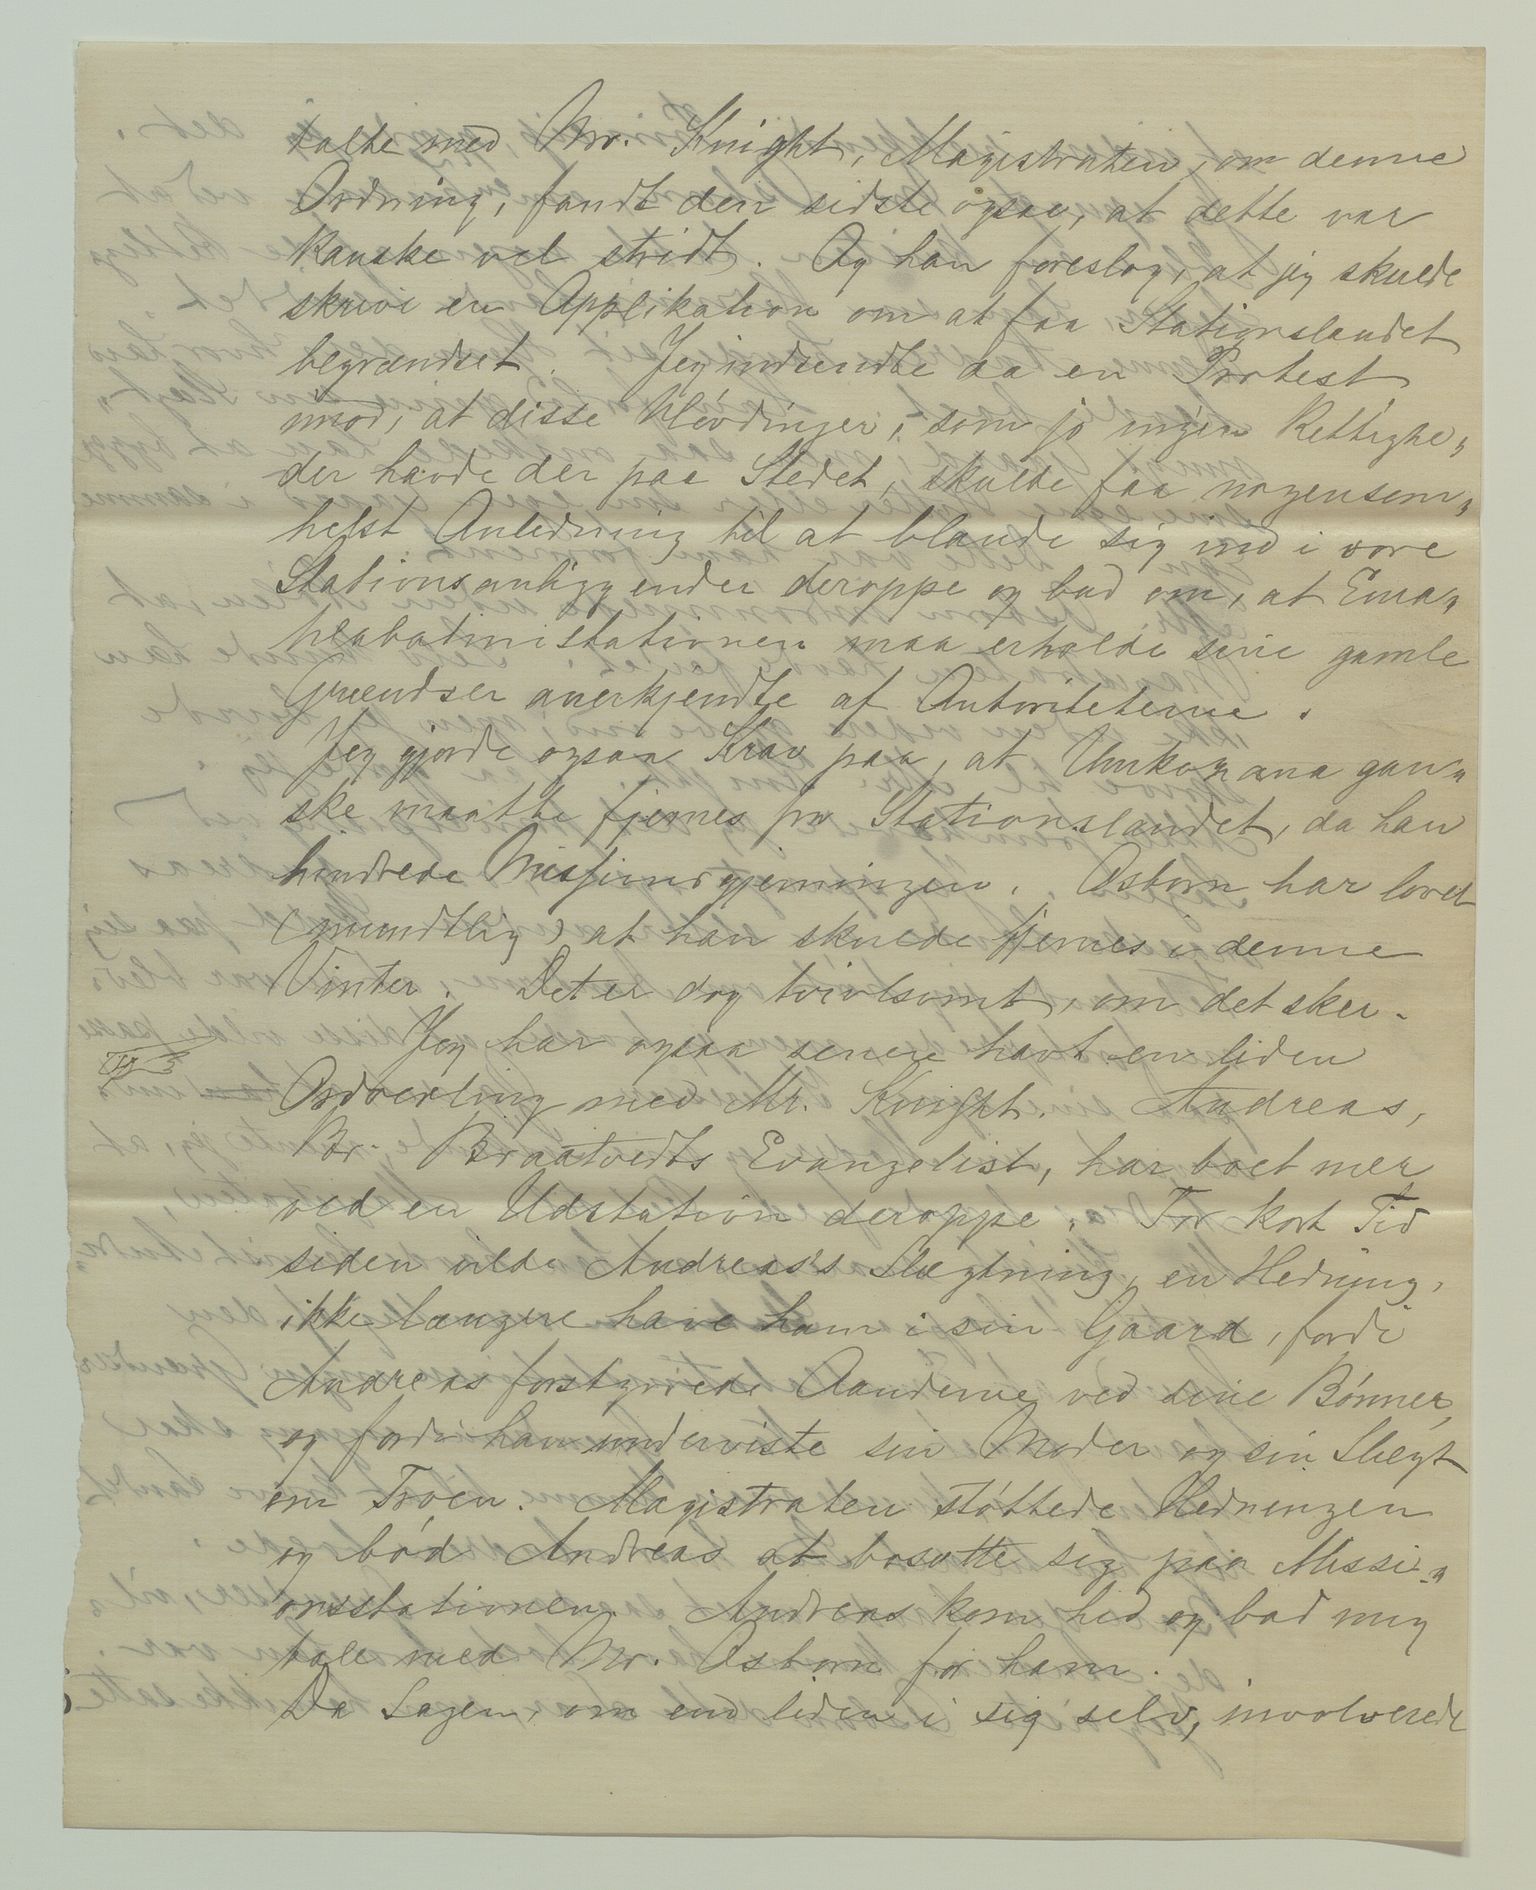 talte med Mr. Knight, Magistraten, om denne
Ordning, fandt den sidste ogsaa, at dette var
kanske vel stridt. Og han foreslog, at jeg skulde
skrive en Applikation om at faa Stationslandet
begrændset. Jeg indsendte da en Protest
imod, at disse Høvdinger, som jo ingen Rettighe„
der havde der paa Stedet, skulde faa nogensom„
helst Anledning til at blande sig ind i vore
Stationsanliggender deroppe og bad om, at Ema„
hlabatinistationen maa erholde sine gamle
Grændser anerkjendte af Autoriteterne.
Jeg gjorde ogsaa Krav paa, at Umkozana gan„
ske maatte fjernes fra Stationslandet, da han
hindrede Missionsgjerningen. Osborn har lovet
(mundtlig) at han skulde fjernes i denne
Vinter. Det er dog tvivlsomt, om det sker.
Jeg har ogsaa senere havt en liden
Ordvexling med Mr. Knight. Andreas,
Br. Braatvedts Evangelist, har boet mer
ved en Udstation deroppe. For kort Tid
siden vilde Andreas's Slægtning, en Hedning,
ikke længere have ham i sin Gaard, fordi
Andreas forstyrrede Aanderne ved sine Bønner,
og fordi han underviste sin Moder og sin Slægt
om Troen. Magistraten støttede Hedningen
og bød Andreas at bosætte sig paa Missi„
onsstationen. Andreas kom hid og bad mig
tale med Mr. Osborn for ham.
Da Sagen, om end liden i sig selv, involverede